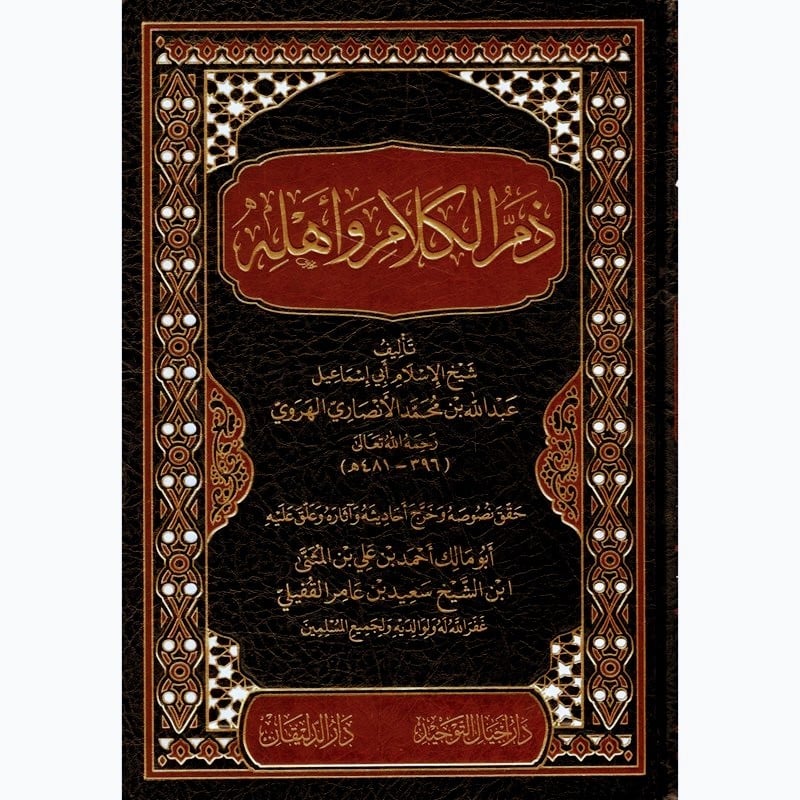 ذم الكلام وأهله
تأليف
شيخ الإسلام أبي إسماعيل
عبد الله بن محمد الأنصاري الهروي
رحمه الله تعالى
(٣٩٦ - ٤٨١هـ)
حقق نصوصه وخرج أحاديثه وآثاره وعلق عليه
أبو مالك أحمد بن علي بن المثنى
ابن الشيخ سعيد بن عامر القفيلي
غفر الله له ولوالديه ولجميع المسلمين
دار أجيال التوحيد
دار الدليقان